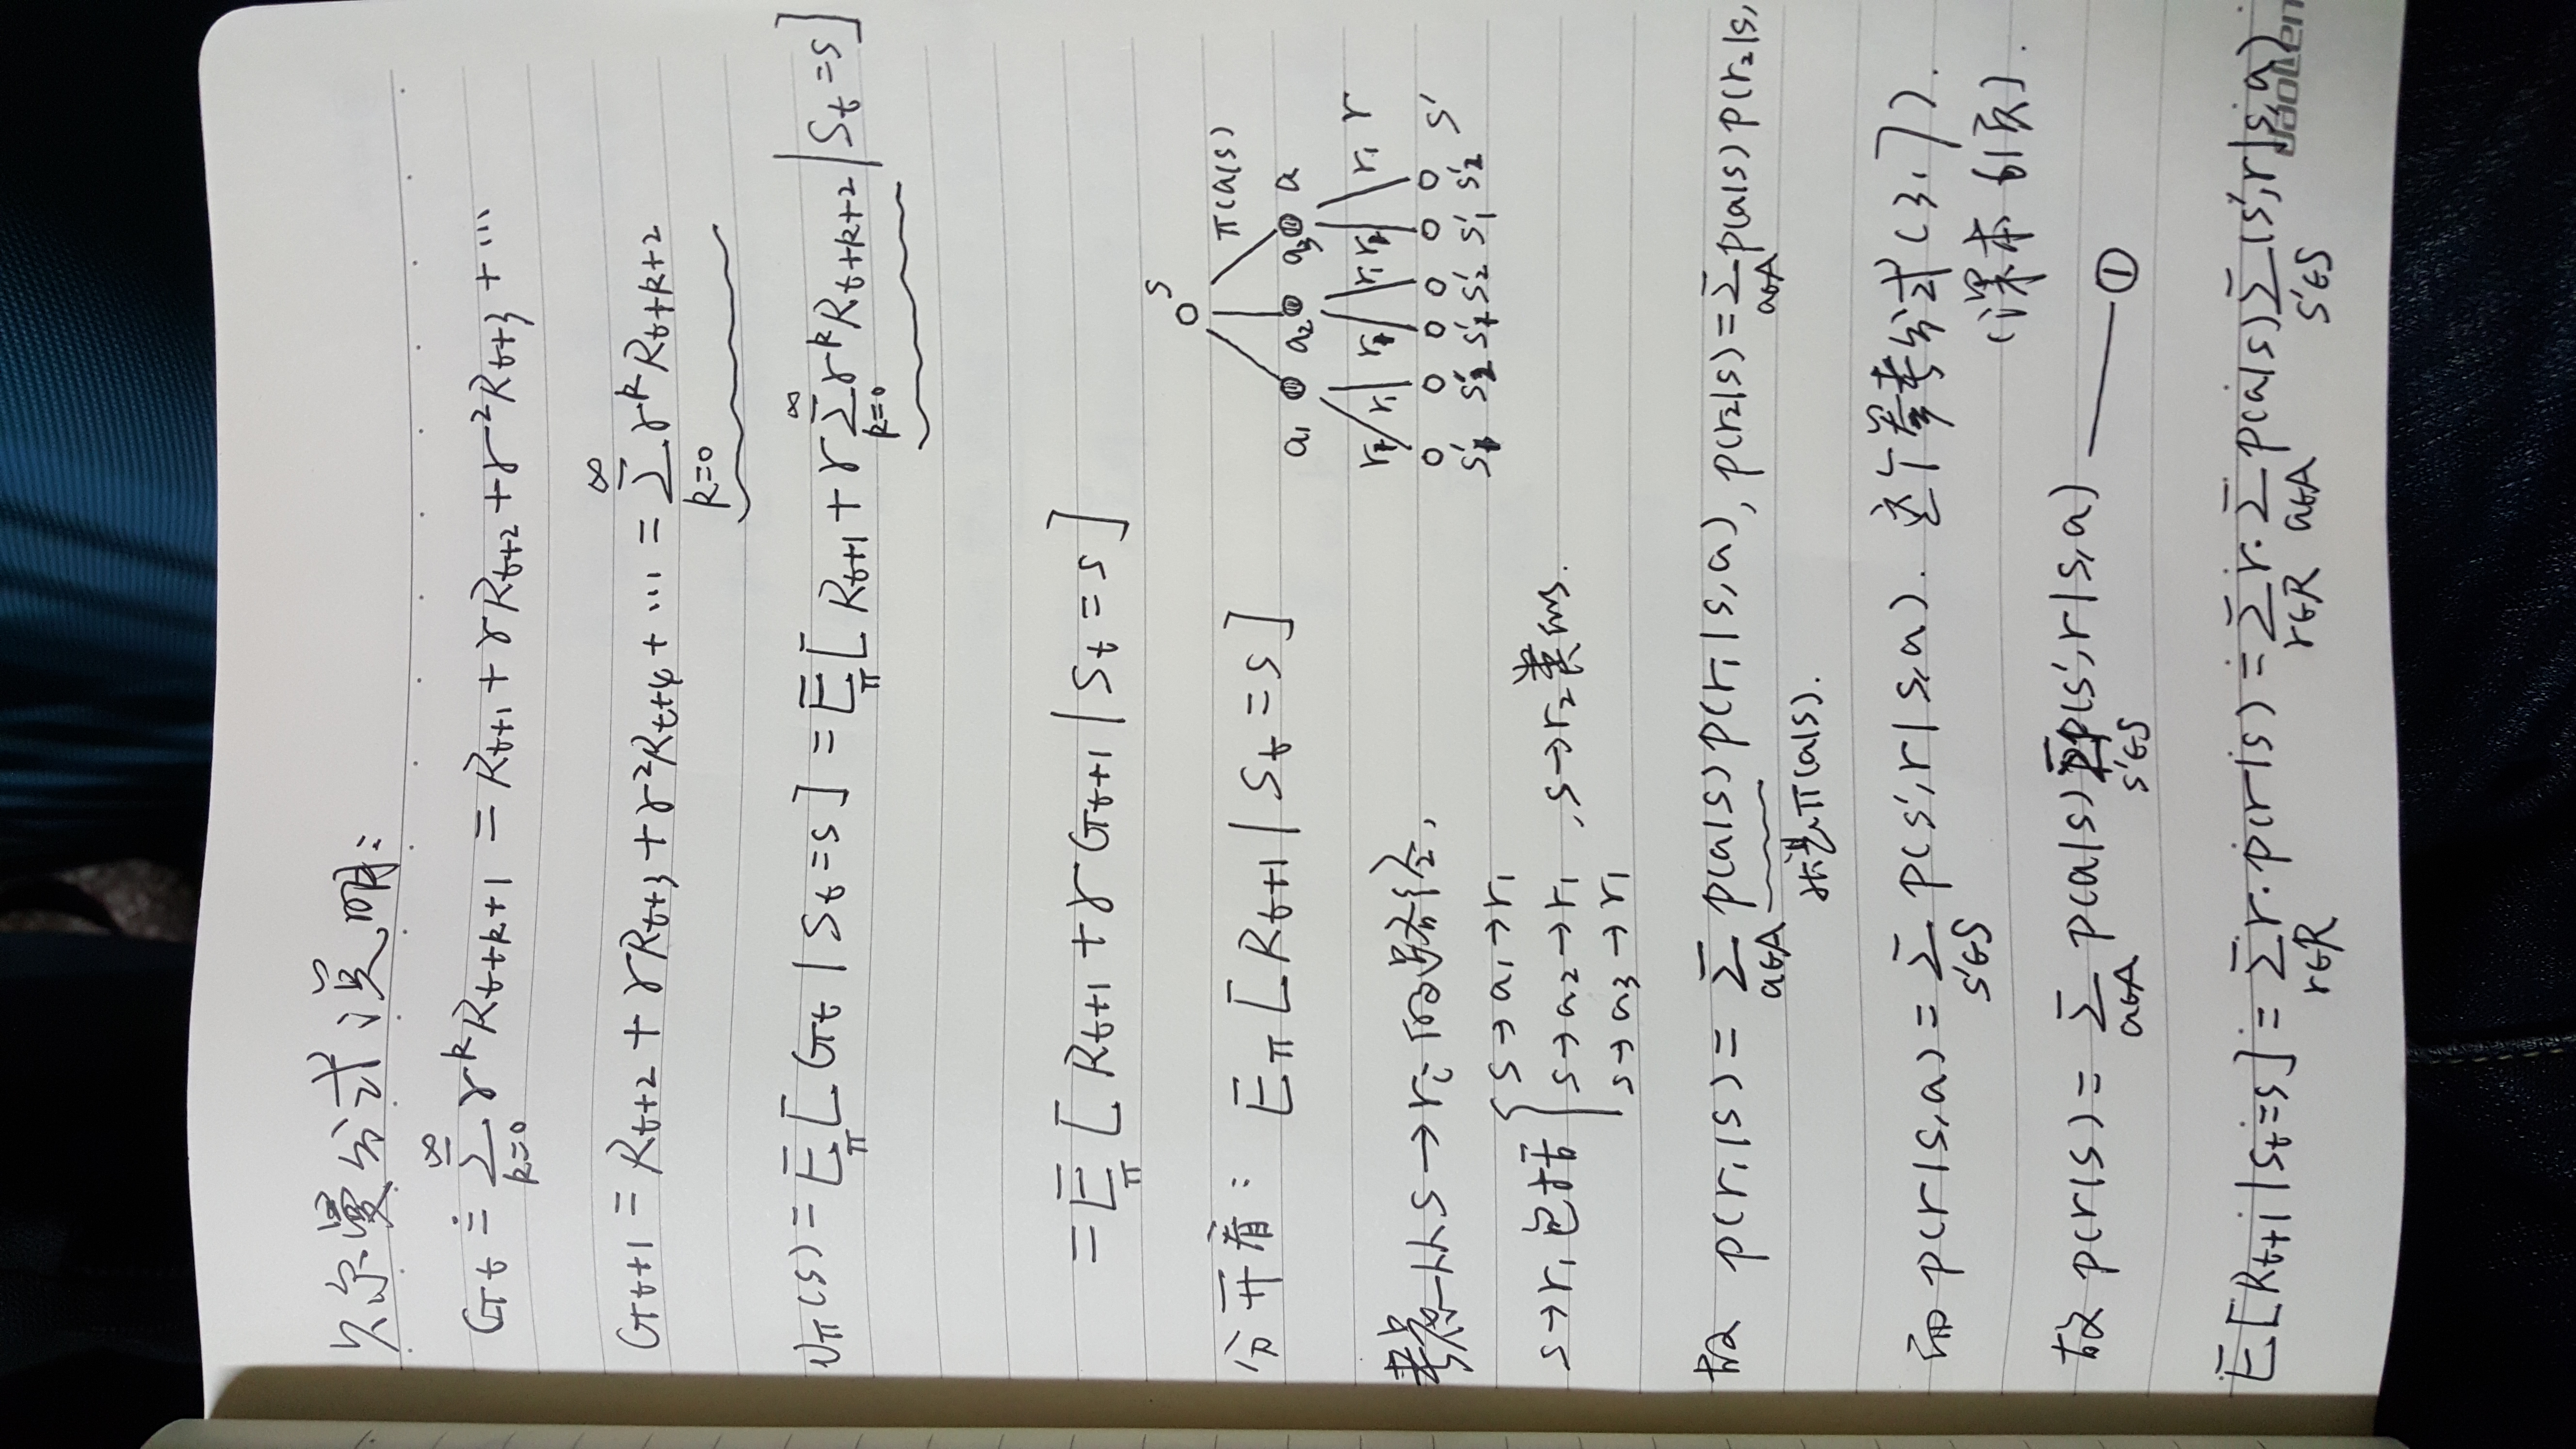 贝尔曼公式说明:
G_t ≐ ∑_{k=0}^{∞} γ^k R_{t+k+1} = R_{t+1} + γR_{t+2} + γ^2R_{t+3} + ⋯
G_{t+1} = R_{t+2} + γR_{t+3} + γ^2R_{t+4} + ⋯ = ∑_{k=0}^{∞} γ^k R_{t+k+2}
v_π(s) = E_π[G_t | S_t = s] = E_π[R_{t+1} + γ∑_{k=0}^{∞} γ^k R_{t+k+2} | S_t = s]
= E_π[R_{t+1} + γG_{t+1} | S_t = s]
s
π(a|s)
分开看: E_π[R_{t+1} | S_t = s]
a_1 a_2 a_3 a
r_2 r_1 r_2 r_1 r_2 r_1 r
考虑从 s → r_i 的路径,
s'_1 s'_2 s'_1 s'_2 s'_1 s'_2 s'
s → a_1 → r_1
s → r_1 包括 { s → a_2 → r_1 , s → r_2 类似.
s → a_3 → r_1
故 p(r_1|s) = ∑_{a∈A} p(a|s) p(r_1|s,a), p(r_2|s) = ∑_{a∈A} p(a|s) p(r_2|s,
就是π(a|s).
而 p(r|s,a) = ∑_{s'∈S} p(s',r|s,a). 这个参考公式(3.7).
(课本 61页).
故 p(r|s) = ∑_{a∈A} p(a|s) ∑_{s'∈S} p(s',r|s,a) —— ①
E[R_{t+1}|S_t=s] = ∑_{r∈R} r· p(r|s) = ∑_{r∈R} r· ∑_{a∈A} p(a|s) ∑_{s'∈S} (s',r|s,a)